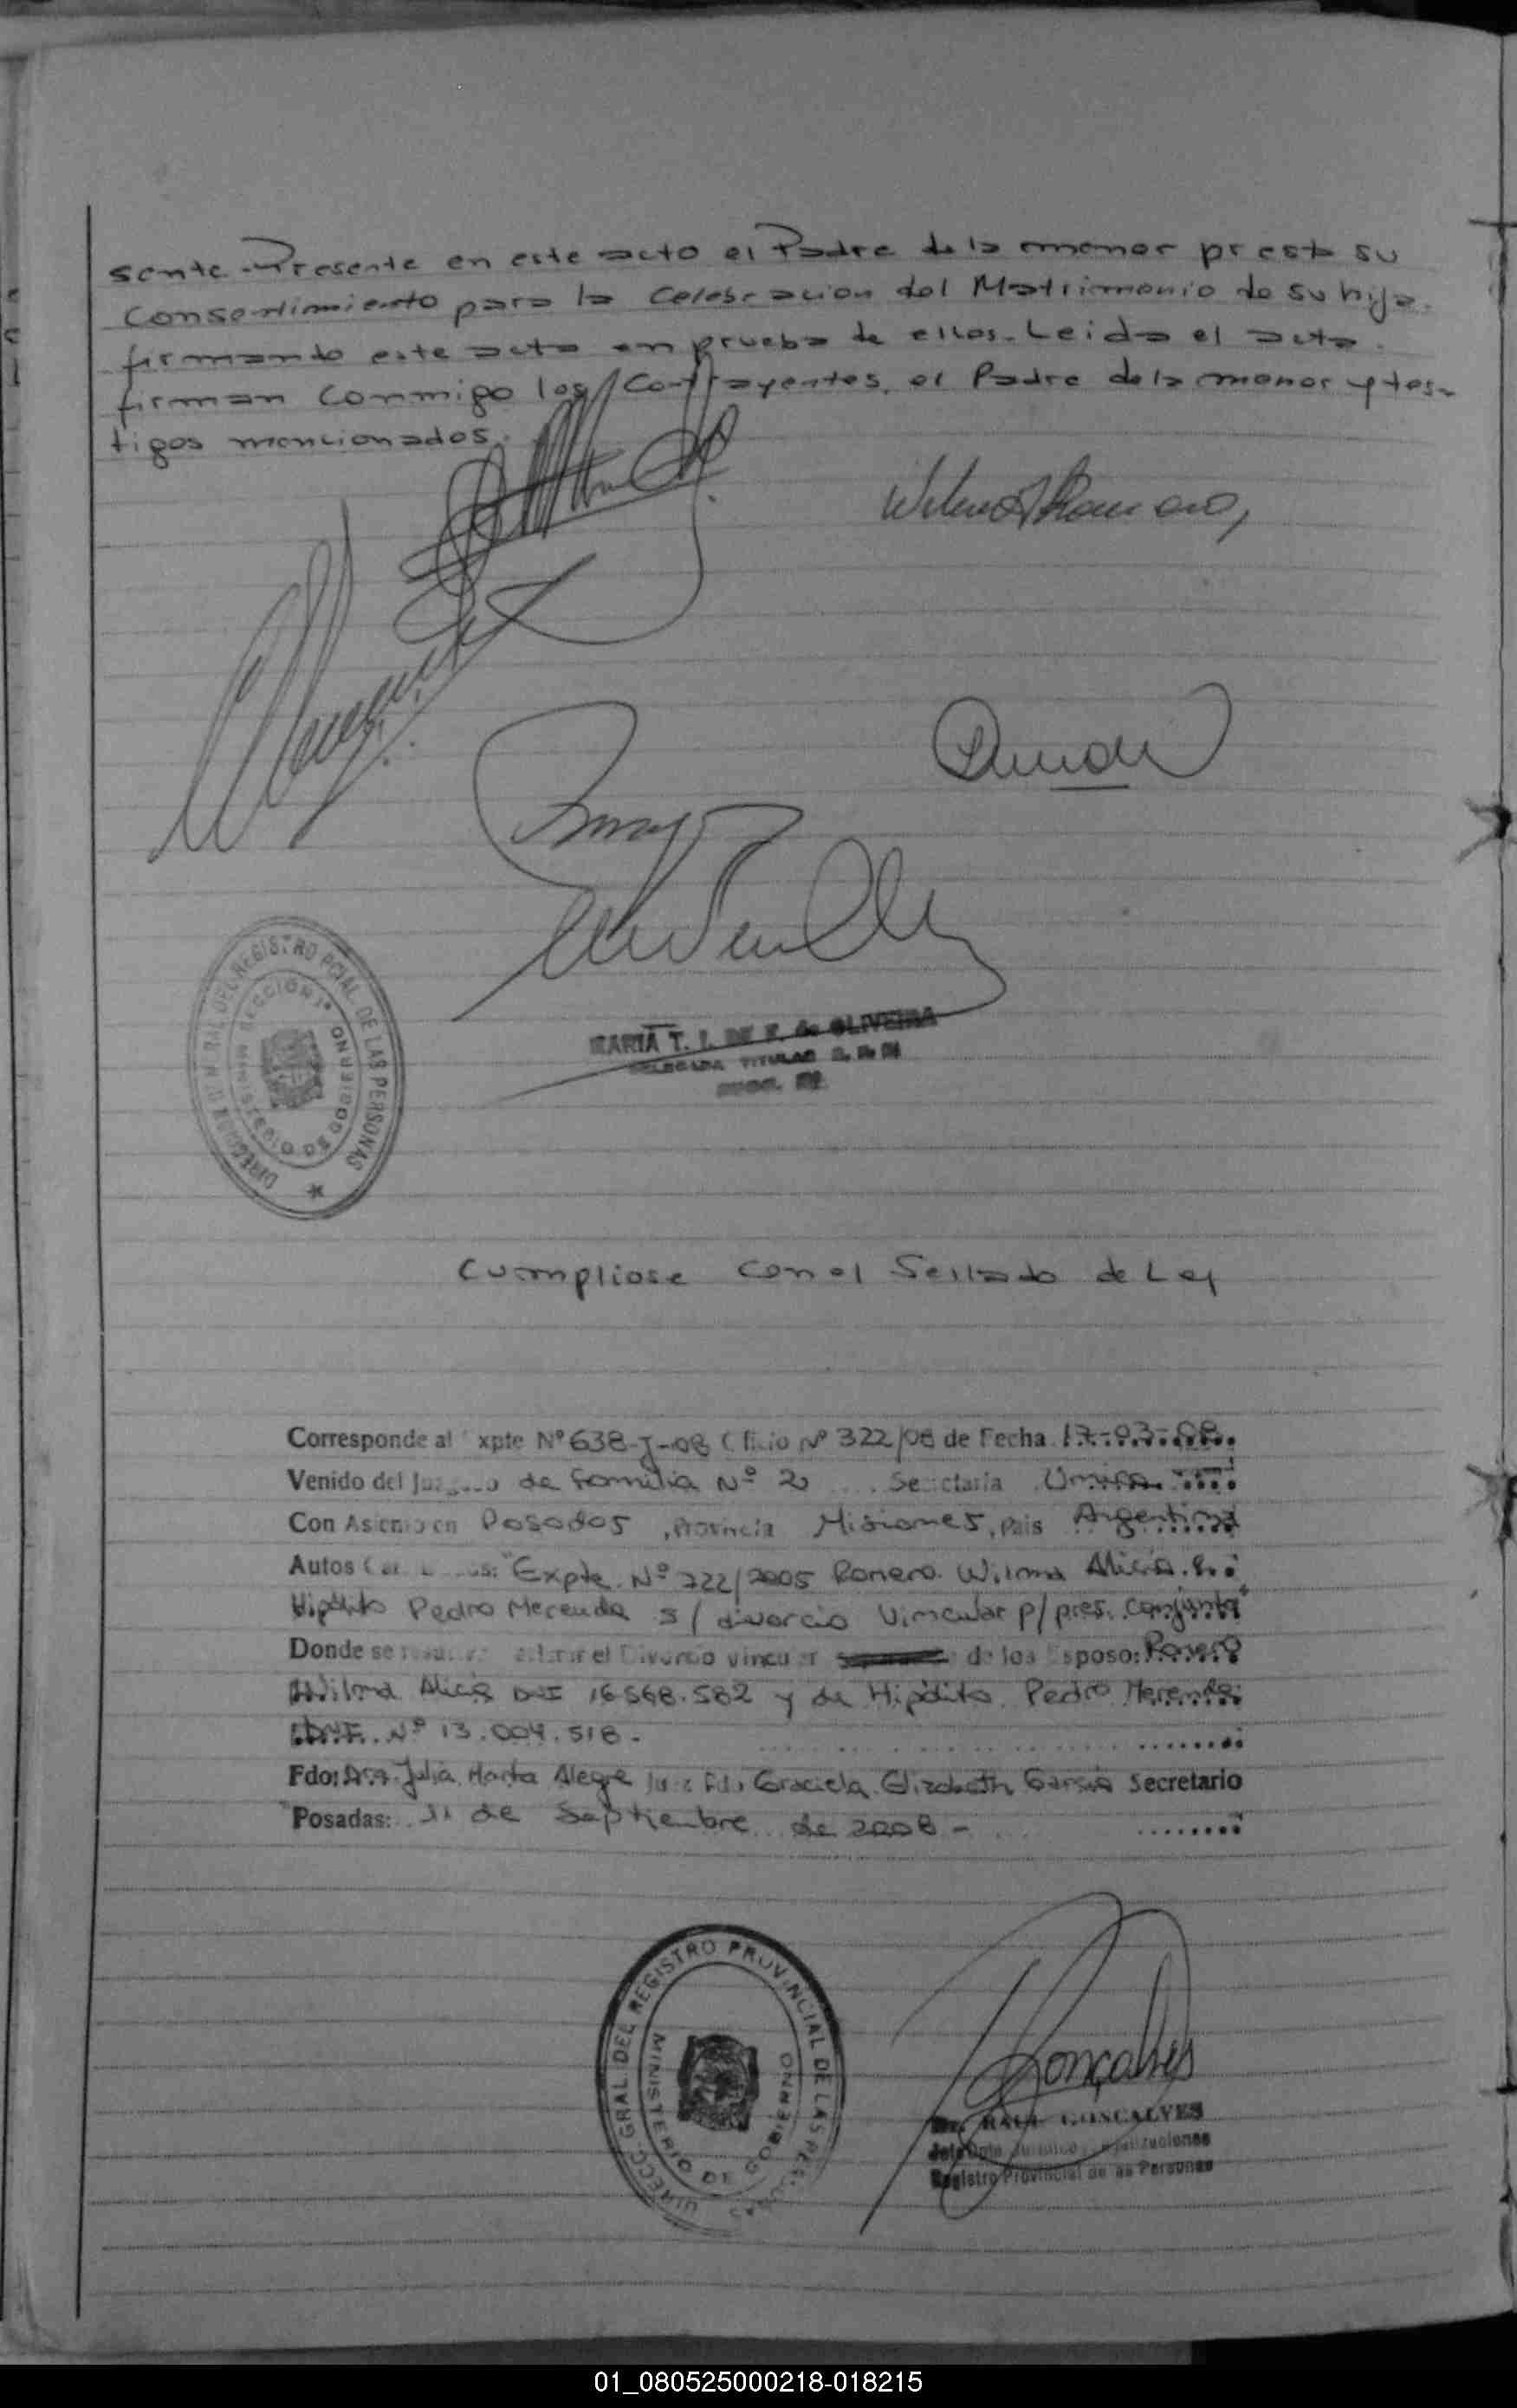 sente.-Presente en este acto el Padre de la menor presta su
Consentimiento para la Celebracion del Matrimonio de su hija.
firmando este acto en prueba de ellos.- Leida el acta.
firman Conmigo los Contrayentes, el Padre de la menor y tes-
tigos mencionados.
MARIA T. I. DE F. de OLIVEIRA
DELEGADA TITULAR
DIRECCION GRAL DEL REGISTRO PCIAL. DE LAS PERSONAS
MINISTERIO DE GOBIERNO
SECCION 1ª
Cumpliose con el Sellado de Ley
Corresponde al Expte Nº 638-J-08 Oficio Nº 322/08 de Fecha 17-03-08
Venido del Juzgado de Familia Nº 2 Secretaria Unica
Con Asiento en Posadas, Provincia Misiones, Pais Argentina
Autos Caratulados: "Expte. Nº 722/2005 Romero Wilma Alicia
Hipólito Pedro Merenda s/ divorcio Vincular p/ pres. conjunta"
Donde se resuelve el Divorcio vincular de los Esposo: Romero
Wilma Alicia DNI 16.568.582 y de Hipólito Pedro Merenda
DNI. Nº 13.004.518.-
Fdo: Dra. Julia Marta Alegre Juez Fdo Graciela Elizabeth Garcia Secretario
Posadas: 11 de Septiembre de 2008-
DIRECC. GRAL. DEL REGISTRO PROVINCIAL DE LAS PERSONAS
MINISTERIO DE GOBIERNO
Gonçalves
Dr. RAUL GONCALVES
Registro Provincial de las Personas
01_080525000218-018215